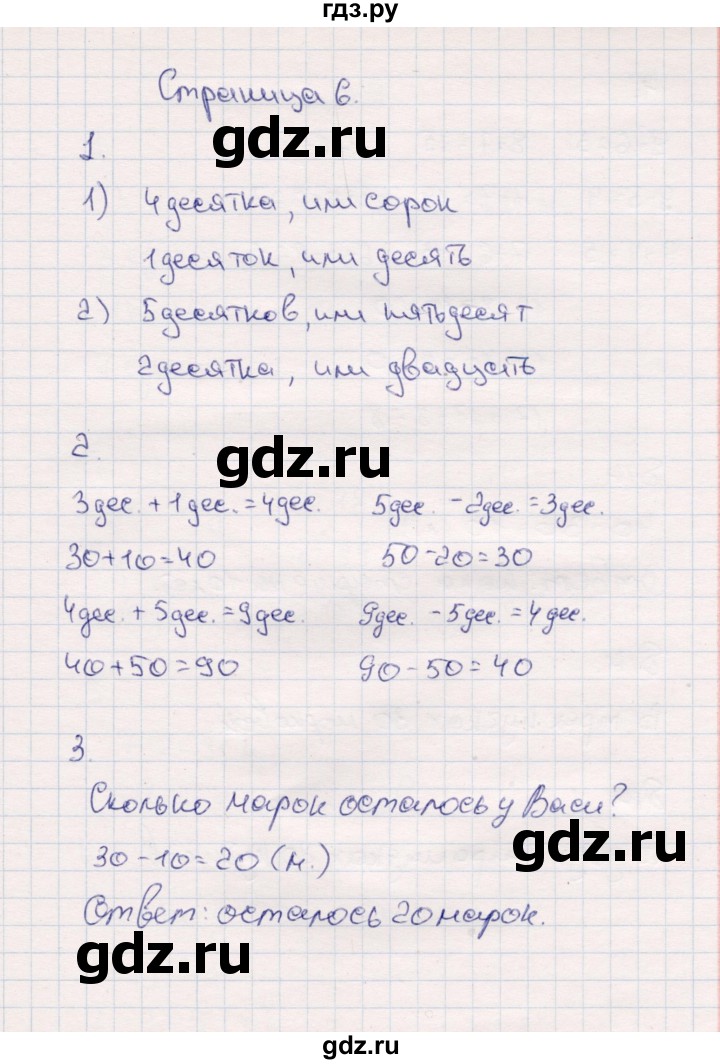 гдз.ру
Страница 6.
gdz.ru
1.
1) 4 десятка, или сорок
1 десяток, или десять
2) 5 десятков, или пятьдесят
2 десятка, или двадцать
2.
gdz.ru
3 дес. + 1 дес. = 4 дес. 5 дес. - 2 дес. = 3 дес.
30+10=40 50-20=30
4 дес. + 5 дес. = 9 дес. 9 дес. - 5 дес. = 4 дес.
40+50=90 90-50=40
3.
Сколько марок осталось у Васи?
gdz.ru
30-10=20 (м.)
Ответ: осталось 20 марок.
gdz.ru
gdz.ru